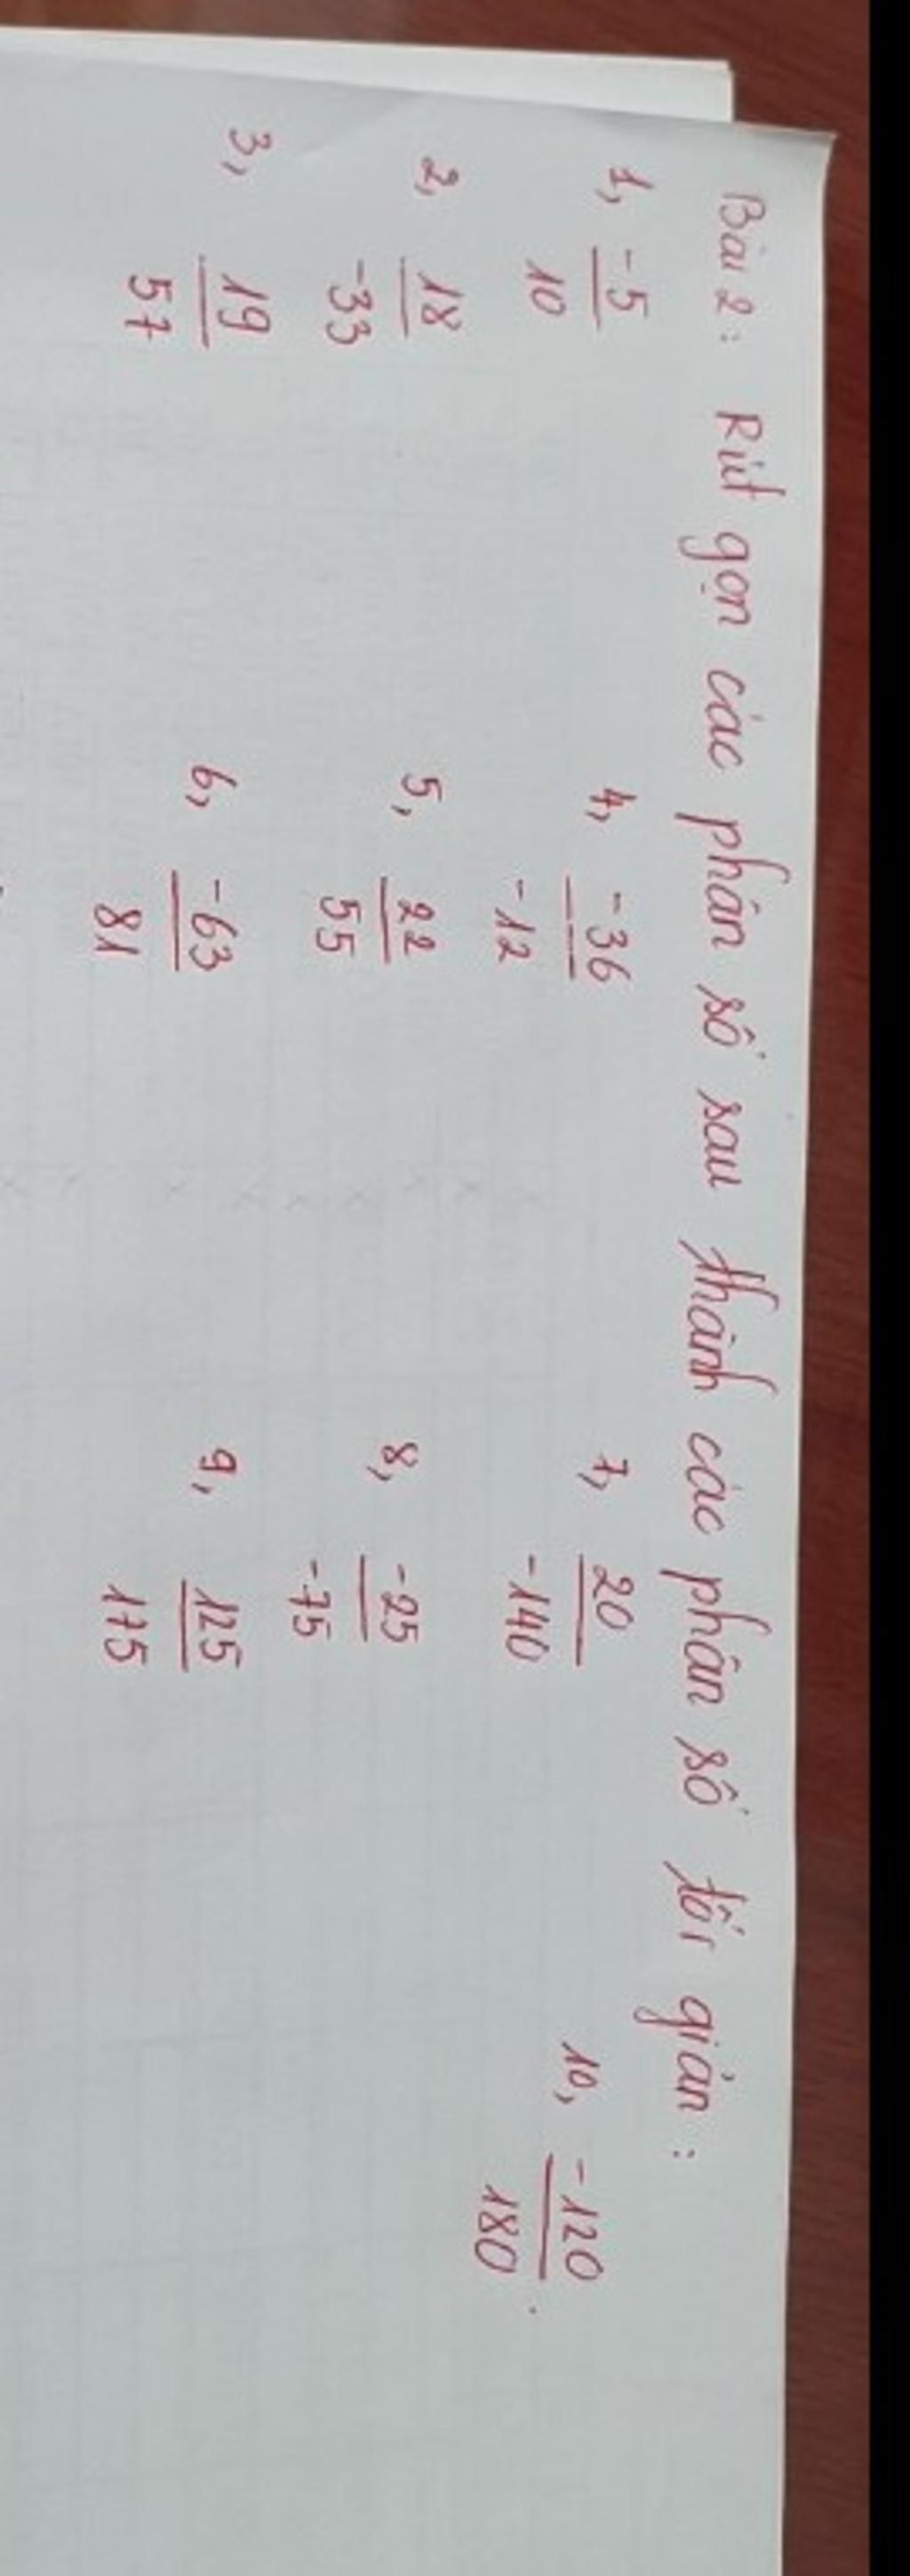 Bài 2: Rút gọn các phân số sau thành các phân số tối giản:
1, -5/10 4, -36/-12 7, 20/-140 10, -120/180.
2, 18/-33 5, 22/55 8, -25/-75
3, 19/57 6, -63/81 9, 125/175